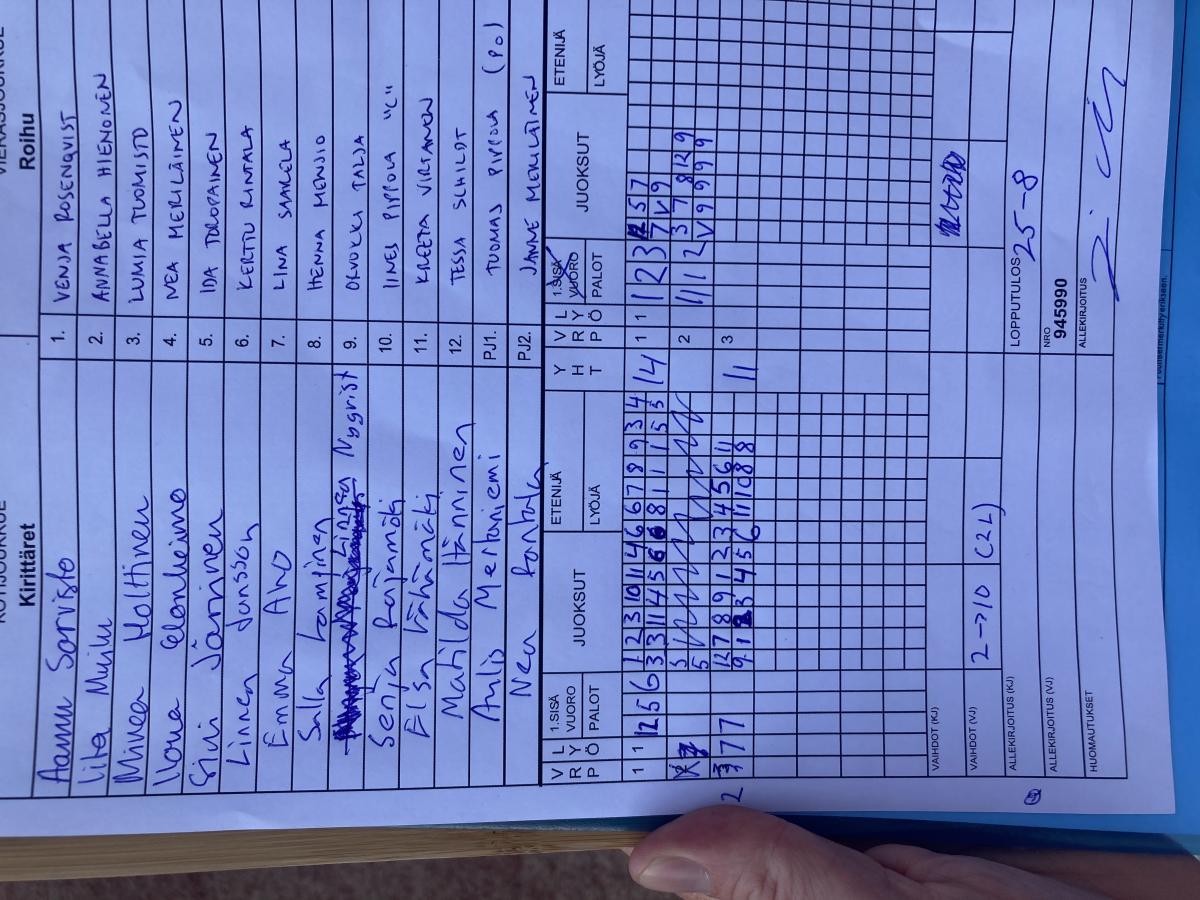 KOTIJOUKKUE VIERASJOUKKUE
Kirittäret Roihu
Aamu Sorvisto 1. VENJA ROSENQVIST
Lita Muiku 2. ANNABELLA HIENONEN
Minea Holttinen 3. LUMIA TUOMISTO
Ilona Elonheimo 4. NEA MERILÄINEN
Siiri Järvinen 5. IDA TOROPAINEN
Linnea Jansson 6. KERTTU RINTALA
Emma Avo 7. LINA SAARELA
Salla Lampinen 8. HENNA MENSIO
Linnea Nygrist 9. ORVOKKI TALJA
Senja Peijamäki 10. IINES PIPPOLA "C"
Elsa Vähämäki 11. KREETA VIRTANEN
Matilda Vänninen 12. TESSA SCHILDT
Aulis Mertaniemi PJ1. TUOMAS PIPPOLA (PO)
Nea Rantala PJ2. JANNE MERILÄINEN
VRP LYÖ 1.SISÄVUORO PALOT JUOKSUT ETENIJÄ LYÖJÄ YHT VRP LYÖ 1.SISÄVUORO PALOT JUOKSUT ETENIJÄ LYÖJÄ
1 1 12 5 6 1 2 3 10 11 4 6 6 7 8 9 3 4 14 1 1 1 2 3 5 7
3 3 11 4 5 6 8 1 1 1 5 5 7 V 9
2 11 12 3 7 8 12 9
V 9 9 9 9
2 7 7 12 7 8 9 1 2 3 4 5 6 11 11 3
9 1 3 4 5 6 11 10 8 8
VAIHDOT (KJ)
VAIHDOT (VJ) 2→10 (2L)
ALLEKIRJOITUS (KJ) LOPPUTULOS 25-8
ALLEKIRJOITUS (VJ) NRO 945990
HUOMAUTUKSET ALLEKIRJOITUS